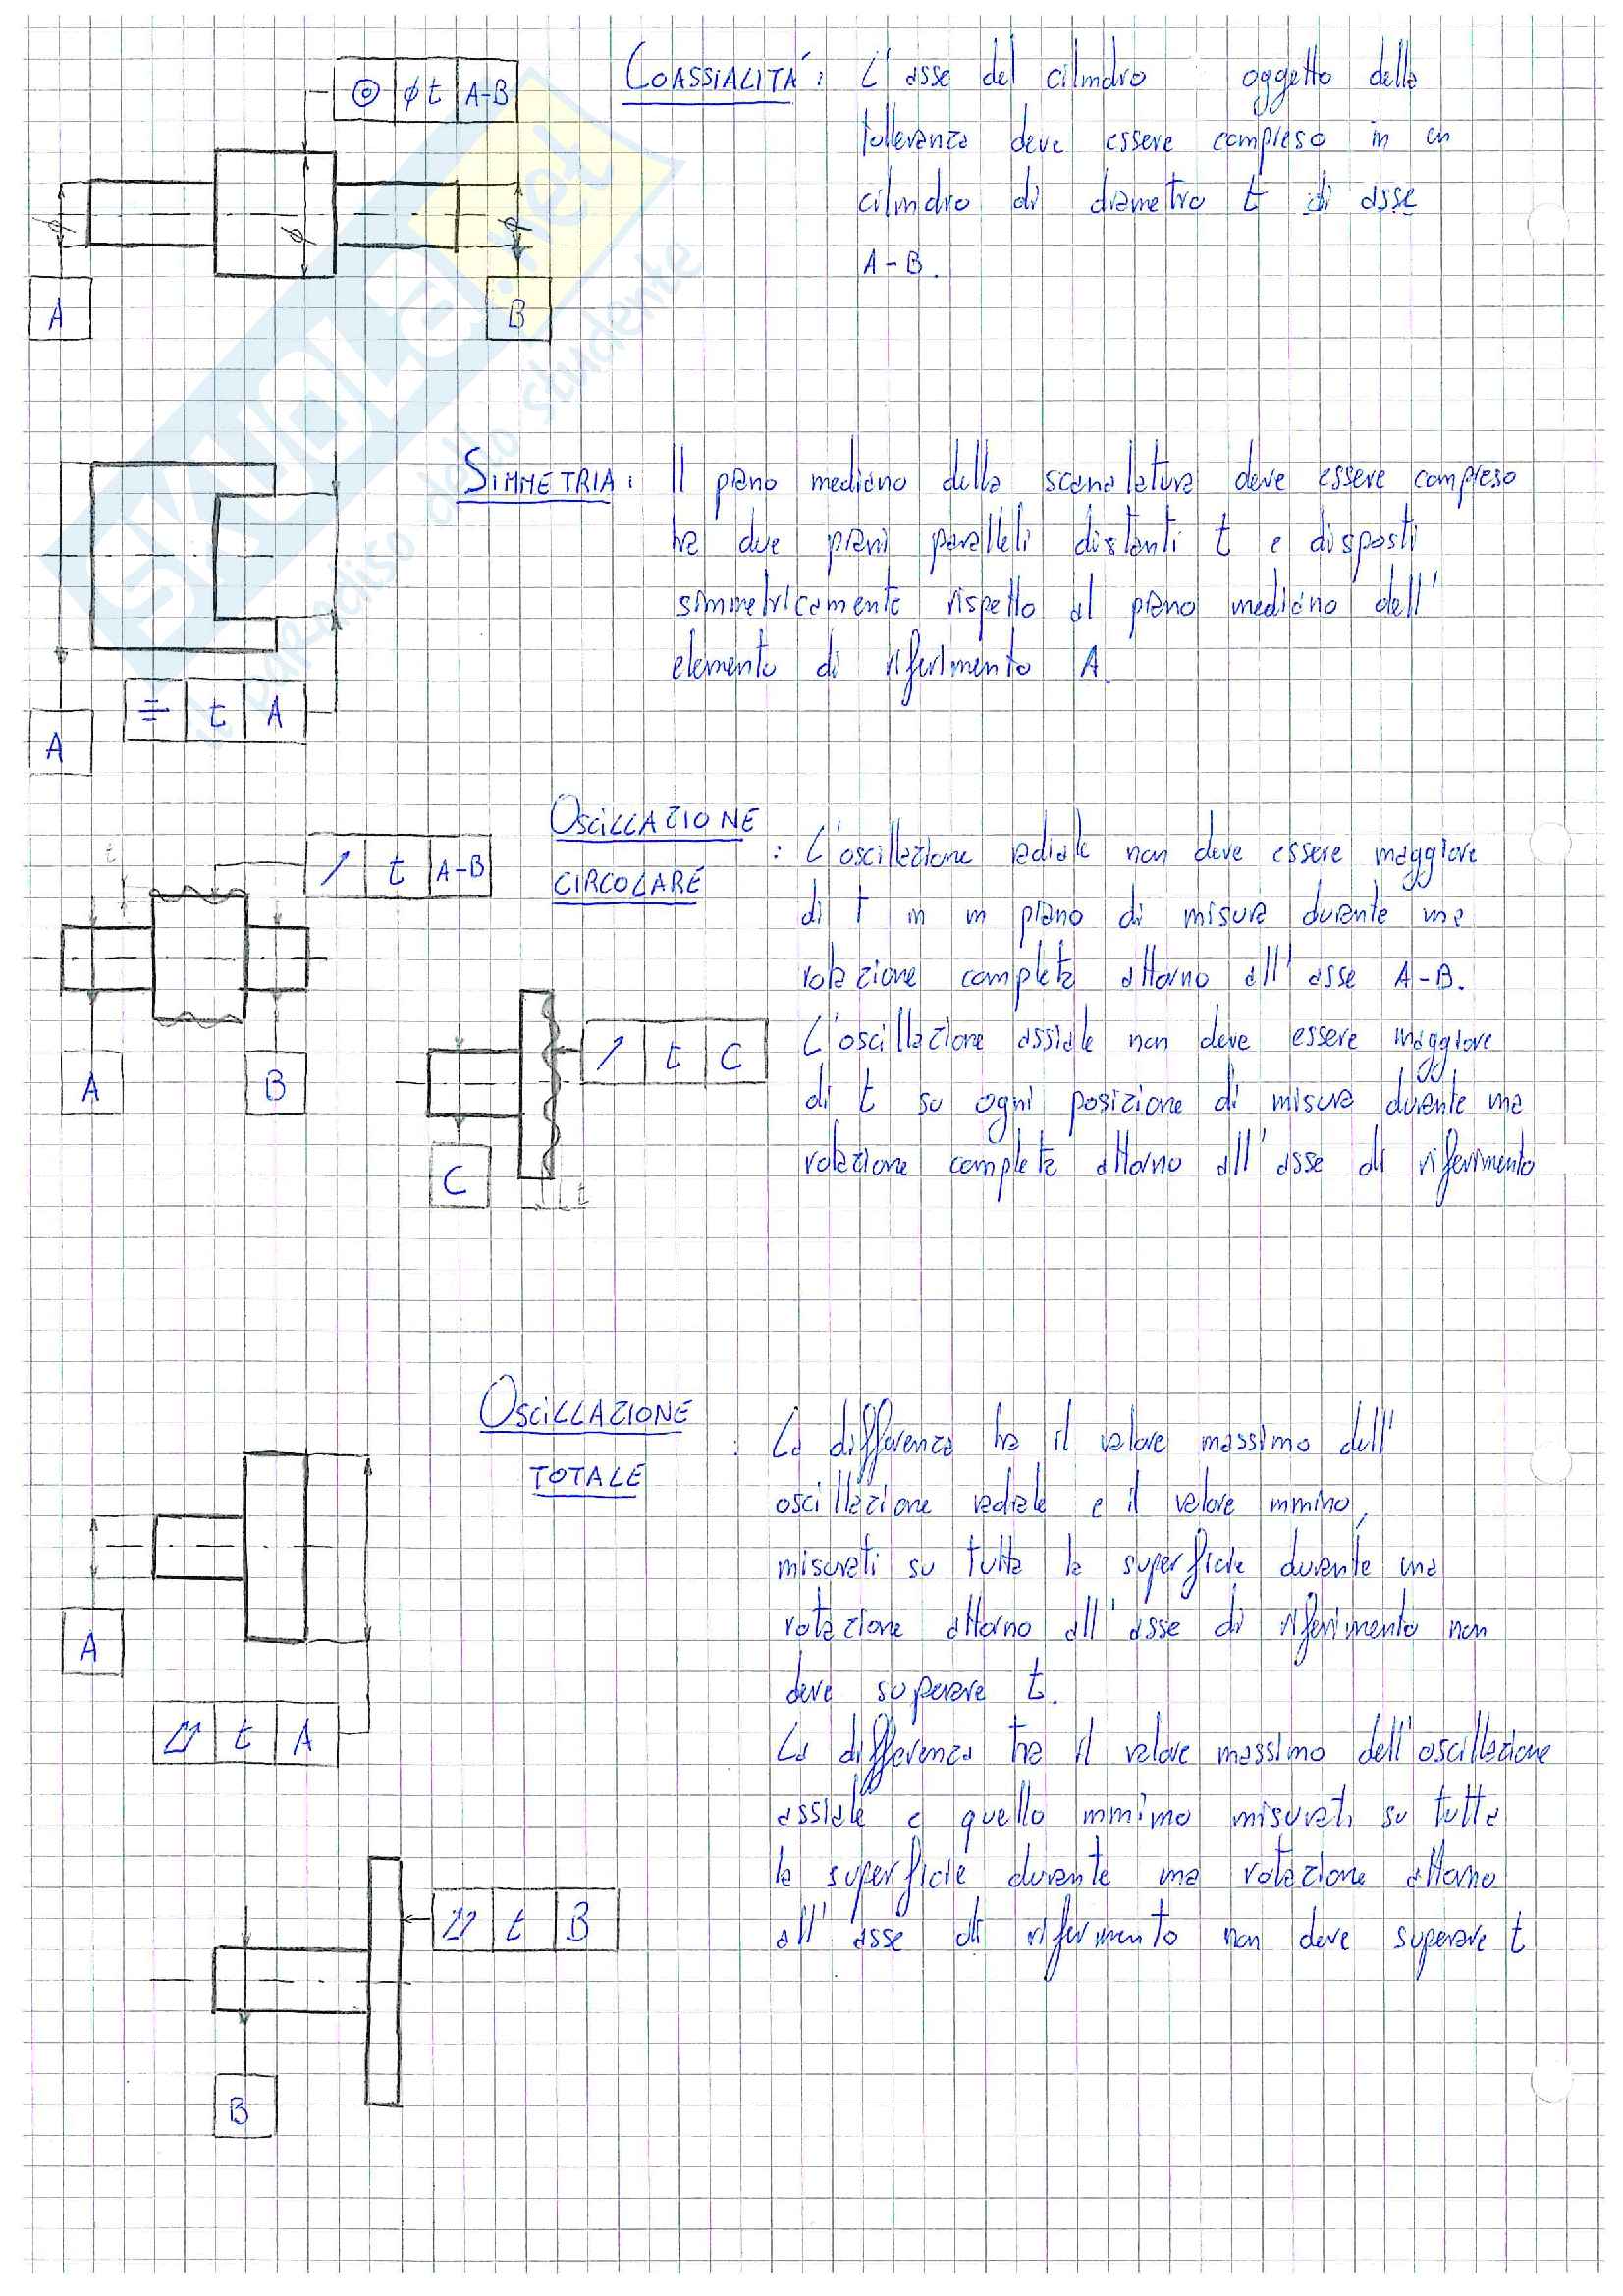 ◎ ϕt A-B
COASSIALITÁ: L'asse del cilindro oggetto della
tolleranza deve essere compreso in un
cilindro di diametro t di asse
A-B.
ϕ ϕ ϕ
A B
SIMMETRIA: Il piano mediano della scanalatura deve essere compreso
tra due piani paralleli distanti t e disposti
simmetricamente rispetto al piano mediano dell'
elemento di riferimento A.
⌯ t A
A
OSCILLAZIONE
CIRCOLARE
: L'oscillazione radiale non deve essere maggiore
di t in un piano di misura durante una
rotazione completa attorno all'asse A-B.
L'oscillazione assiale non deve essere maggiore
di t su ogni posizione di misura durante una
rotazione completa attorno all'asse di riferimento
t
↗ t A-B
A B
↗ t C
C
t
OSCILLAZIONE
TOTALE
: La differenza tra il valore massimo dell'
oscillazione radiale e il valore minimo,
misurati su tutta la superficie durante una
rotazione attorno all'asse di riferimento non
deve superare t.
La differenza tra il valore massimo dell'oscillazione
assiale e quello minimo misurati su tutta
la superficie durante una rotazione attorno
all'asse di riferimento non deve superare t
A
⌰ t A
⌰ t B
B
SKUOLA.net
il paradiso dello studente